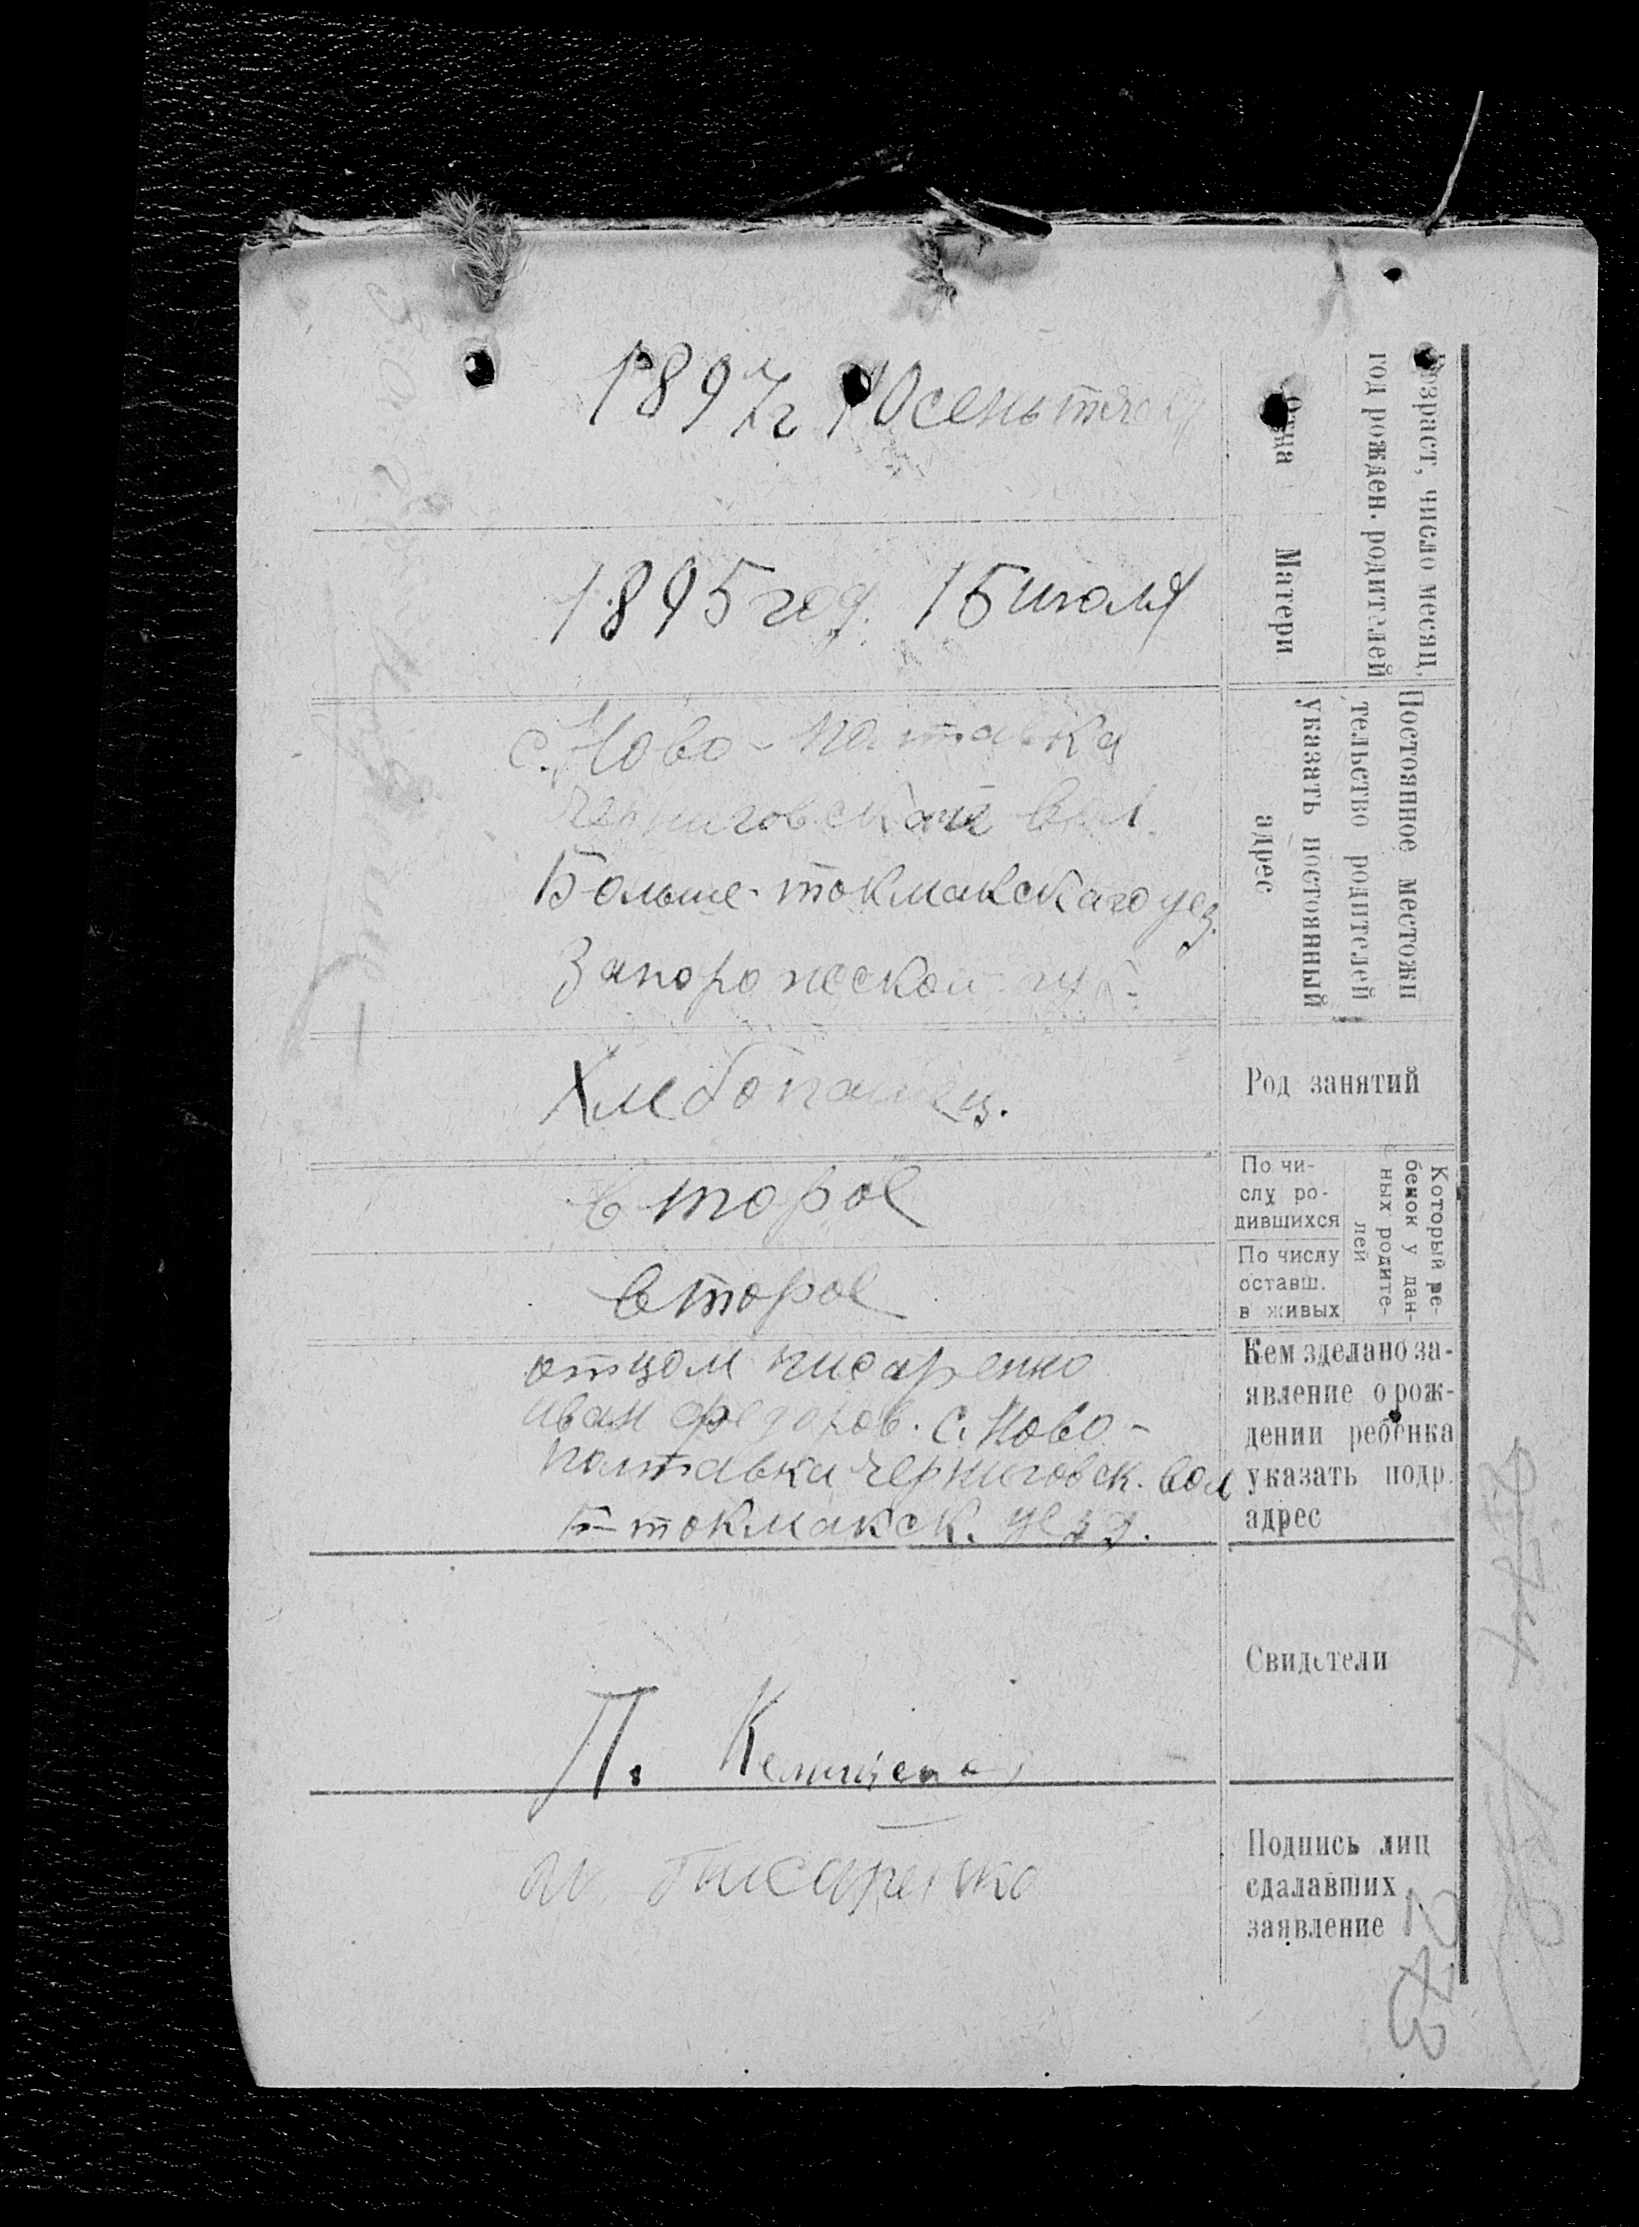 Возраст, число месяц,
год рожден. родителей
Отца
1897г Осень
Матери
1895 год. 15 июля
Постоянное местожи
тельство родителей
указать постоянный
адрес
с. Ново-Полтавка
Черниговской вол.
Больше-токмакскаго уез.
Запорожской губ.
Род занятий
Хлебопашец.
Который ре-
бенок у дан-
ных родите-
лей
По чи-
слу ро-
дившихся
второе
По числу
оставш.
в живых
второе
Кем зделано за-
явление о рож-
дении ребенка
указать подр.
адрес
отцом писаренко
иван федоров. с. Ново-
полтавки черниговск. вол
Б-токмакск. уезд.
Свидетели
П.
Подпись лиц
сдалавших
заявление
Писаренко